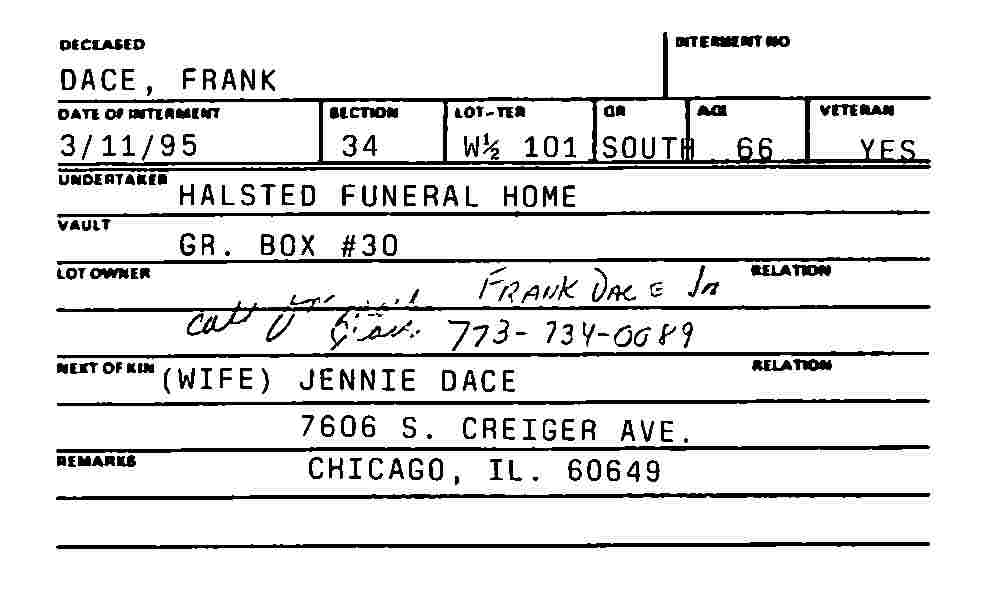 DECEASED INTERMENT NO
DACE, FRANK
DATE OF INTERMENT SECTION LOT-TER GR AGE VETERAN
3/11/95 34 W½ 101 SOUTH 66 YES
UNDERTAKER HALSTED FUNERAL HOME
VAULT
GR. BOX #30
LOT OWNER FRANK DACE Jr RELATION
Call 773-734-0089
NEXT OF KIN (WIFE) JENNIE DACE RELATION
7606 S. CREIGER AVE.
REMARKS CHICAGO, IL. 60649